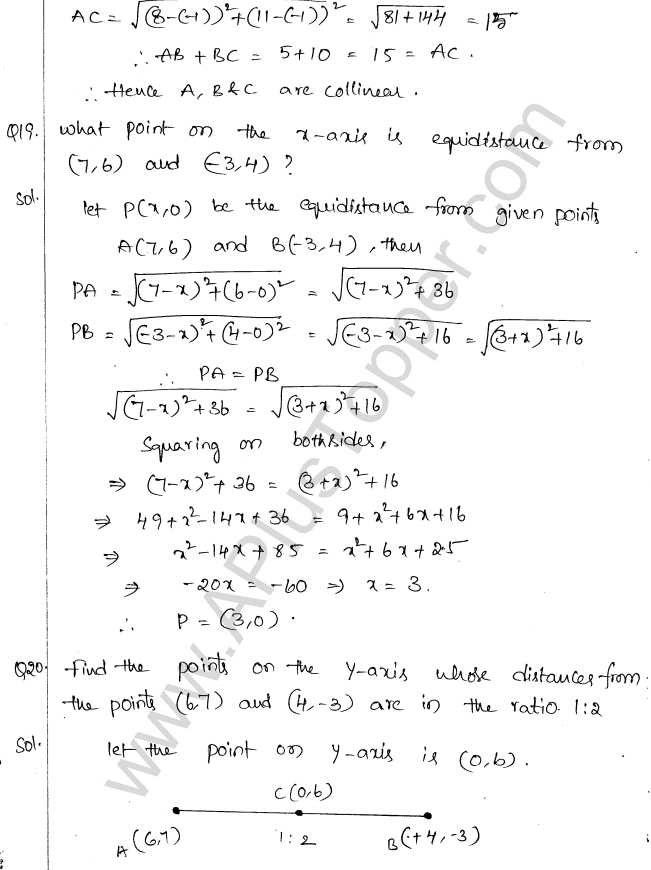 AC = √(8-(-1))²+(11-(-1))² = √81+144 = 15
∴ AB + BC = 5+10 = 15 = AC.
∴ Hence A, B & C are collinear.
Q19. What point on the x-axis is equidistance from
(7,6) and (-3,4)?
Sol. let P(x,0) be the equidistance from given points
A(7,6) and B(-3,4), then
PA = √(7-x)²+(6-0)² = √(7-x)²+36
PB = √(-3-x)²+(4-0)² = √(-3-x)²+16 = √(3+x)²+16
∴ PA = PB
√(7-x)²+36 = √(3+x)²+16
Squaring on bothsides,
⇒ (7-x)²+36 = (3+x)²+16
⇒ 49+x²-14x+36 = 9+x²+6x+16
⇒ x²-14x+85 = x²+6x+25
⇒ -20x = -60 ⇒ x = 3.
∴ P = (3,0).
Q20. Find the points on the y-axis whose distances from
the points (6,7) and (4,-3) are in the ratio. 1:2
Sol. let the point on y-axis is (0,b).
C(0,b)
A(6,7) 1:2 B(+4,-3)
www.APlusTopper.com